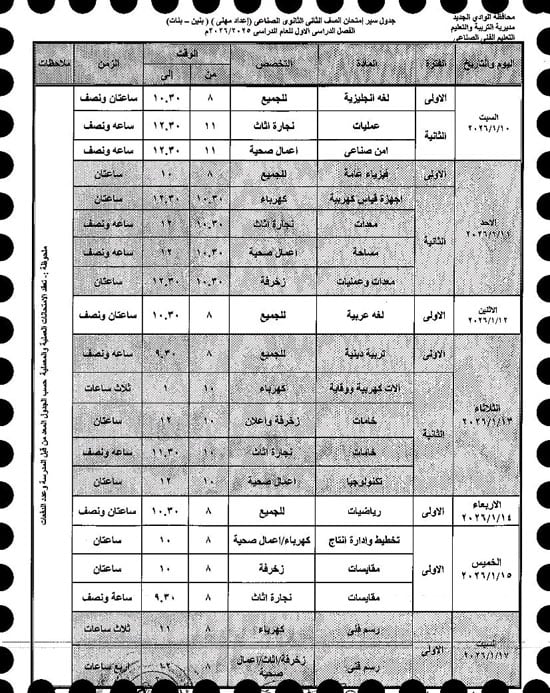 محافظه الوادي الجديد
مديرية التربية والتعليم
التعليم الفنى الصناعى
جدول سير إمتحان الصف الثانى الثانوى الصناعى (إعداد مهنى ) ( بنين – بنات)
الفصل الدراسى الاول للعام الدراسى ٢٠٢٦/٢٠٢٥م
اليوم والتاريخ الفترة المادة التخصص الوقت الزمن ملاحظات
من إلى
السبت ٢٠٢٦/١/١٠ الاولى لغه انجليزية للجميع ٨ ١٠.٣٠ ساعتان ونصف
الثانية عمليات نجارة اثاث ١١ ١٢.٣٠ ساعه ونصف
امن صناعى اعمال صحية ١١ ١٢.٣٠ ساعه ونصف
الاحد ٢٠٢٦/١/١١ الاولى فيزياء عامة للجميع ٨ ١٠ ساعتان
الثانية اجهزة قياس كهربية كهرباء ١٠.٣٠ ١٢.٣٠ ساعتان
معدات نجارة اثاث ١٠.٣٠ ١٢ ساعه ونصف
مساحة اعمال صحية ١٠.٣٠ ١٢ ساعه ونصف
معدات وعمليات زخرفة ١٠.٣٠ ١٢.٣٠ ساعتان
الاثنين ٢٠٢٦/١/١٢ الاولى لغه عربية للجميع ٨ ١٠.٣٠ ساعتان ونصف
الثلاثاء ٢٠٢٦/١/١٣ الاولى تربية دينية للجميع ٨ ٩.٣٠ ساعه ونصف
الثانية الات كهربية ووقاية كهرباء ١٠ ١ ثلاث ساعات
خامات زخرفة واعلان ١٠ ١٢ ساعتان
خامات نجارة اثاث ١٠ ١١.٣٠ ساعه ونصف
تكنولوجيا اعمال صحية ١٠ ١٢ ساعتان
الاربعاء ٢٠٢٦/١/١٤ الاولى رياضيات للجميع ٨ ١٠.٣٠ ساعتان ونصف
الخميس ٢٠٢٦/١/١٥ الاولى تخطيط وإدارة انتاج كهرباء/اعمال صحية ٨ ١٠ ساعتان
مقايسات زخرفة ٨ ١٠ ساعتان
مقايسات نجارة اثاث ٨ ٩.٣٠ ساعة ونصف
السبت ٢٠٢٦/١/١٧ الاولى رسم فنى كهرباء ٨ ١١ ثلاث ساعات
رسم فنى زخرفة/اثاث/اعمال صحية ٨ ١٢ اربع ساعات
ملحوظة :- تعقد الامتحانات العملية والمعملية حسب الجدول المعد من قبل المدرسة وعدد الدفعات